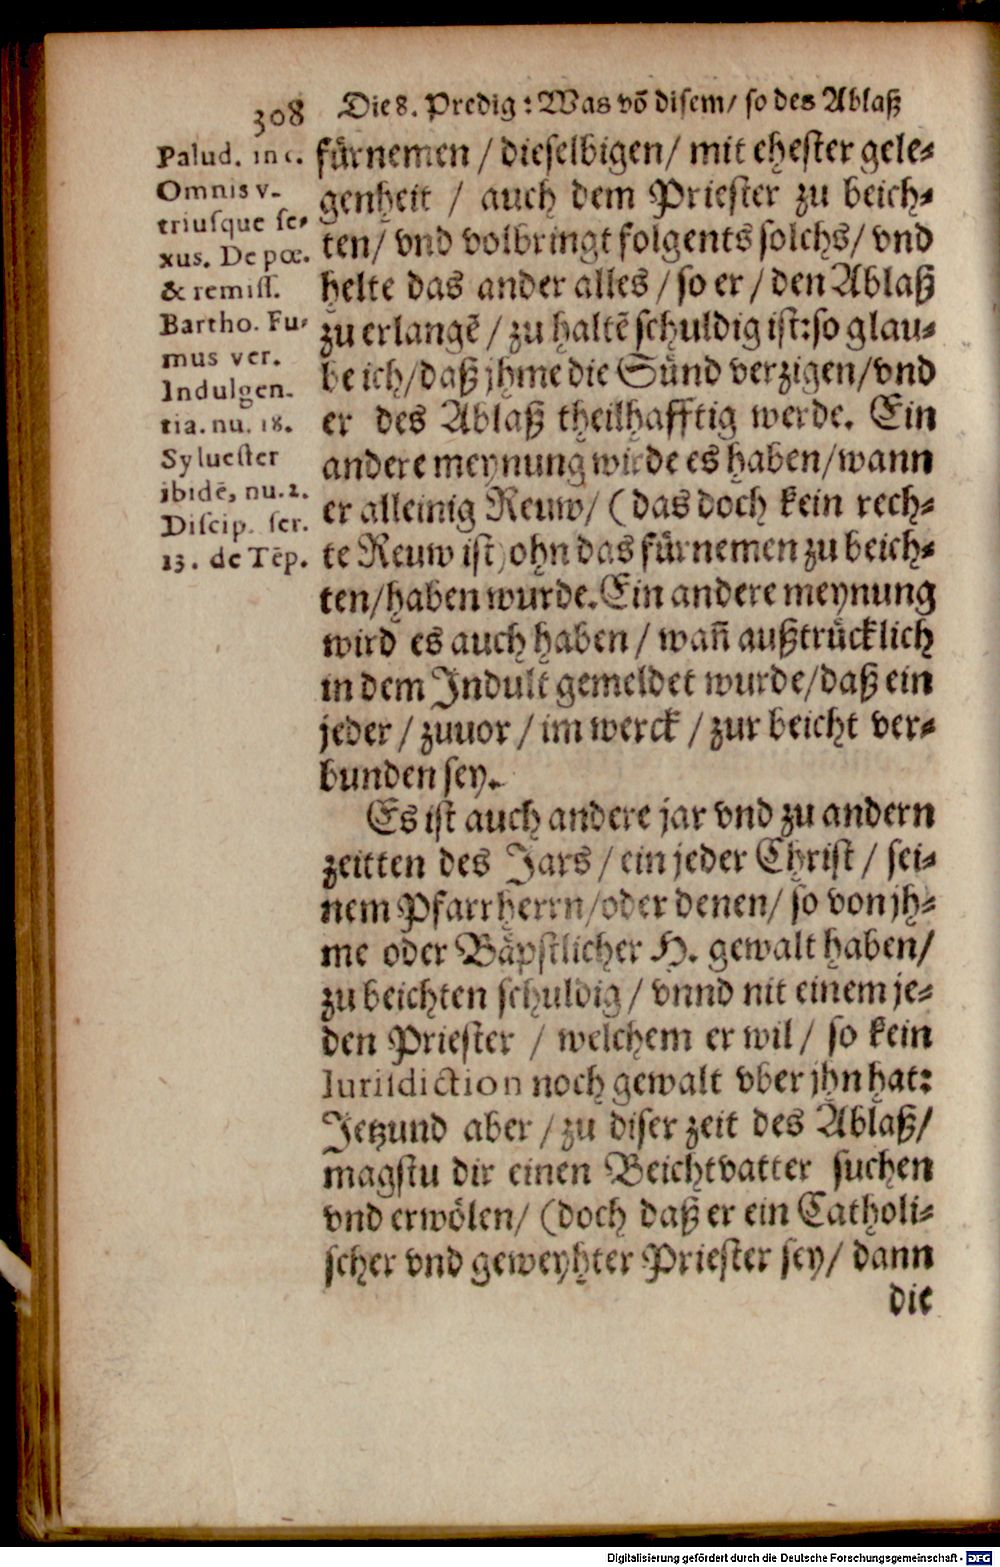 308 Die 8. Predig: Was võ disem/ so des Ablaß
Palud. in c.
Omnis v-
triusque se-
xus. De pœ.
& remiss.
Bartho. Fu-
mus ver.
Indulgen-
tia. nu. 18.
Syluester
ibidē, nu. 2.
Discip. ser.
13. de Tēp.
fürnemen / dieselbigen / mit ehester gele-
genheit / auch dem Priester zu beich-
ten/ vnd volbringt folgents solchs/ vnd
helte das ander alles / so er / den Ablaß
zu erlangē / zu haltē schuldig ist: so glau-
be ich/ daß jhme die Sünd verzigen/ vnd
er des Ablaß theilhafftig werde. Ein
andere meynung wirde es haben/ wann
er alleinig Reuw/ (das doch kein rech-
te Reuw ist) ohn das fürnemen zu beich-
ten/ haben wurde. Ein andere meynung
wird es auch haben / wañ außtrücklich
in dem Indult gemeldet wurde/ daß ein
jeder / zuuor / im werck / zur beicht ver-
bunden sey.
Es ist auch andere jar vnd zu andern
zeitten des Jars / ein jeder Christ / sei-
nem Pfarrherrn/ oder denen/ so von jh-
me oder Bäpstlicher H. gewalt haben/
zu beichten schuldig / vnnd nit einem je-
den Priester / welchem er wil / so kein
Iurisdiction noch gewalt vber jhn hat:
Jetzund aber / zu diser zeit des Ablaß/
magstu dir einen Beichtvatter suchen
vnd erwölen/ (doch daß er ein Catholi-
scher vnd geweyhter Priester sey/ dann
die
Digitalisierung gefördert durch die Deutsche Forschungsgemeinschaft - DFG